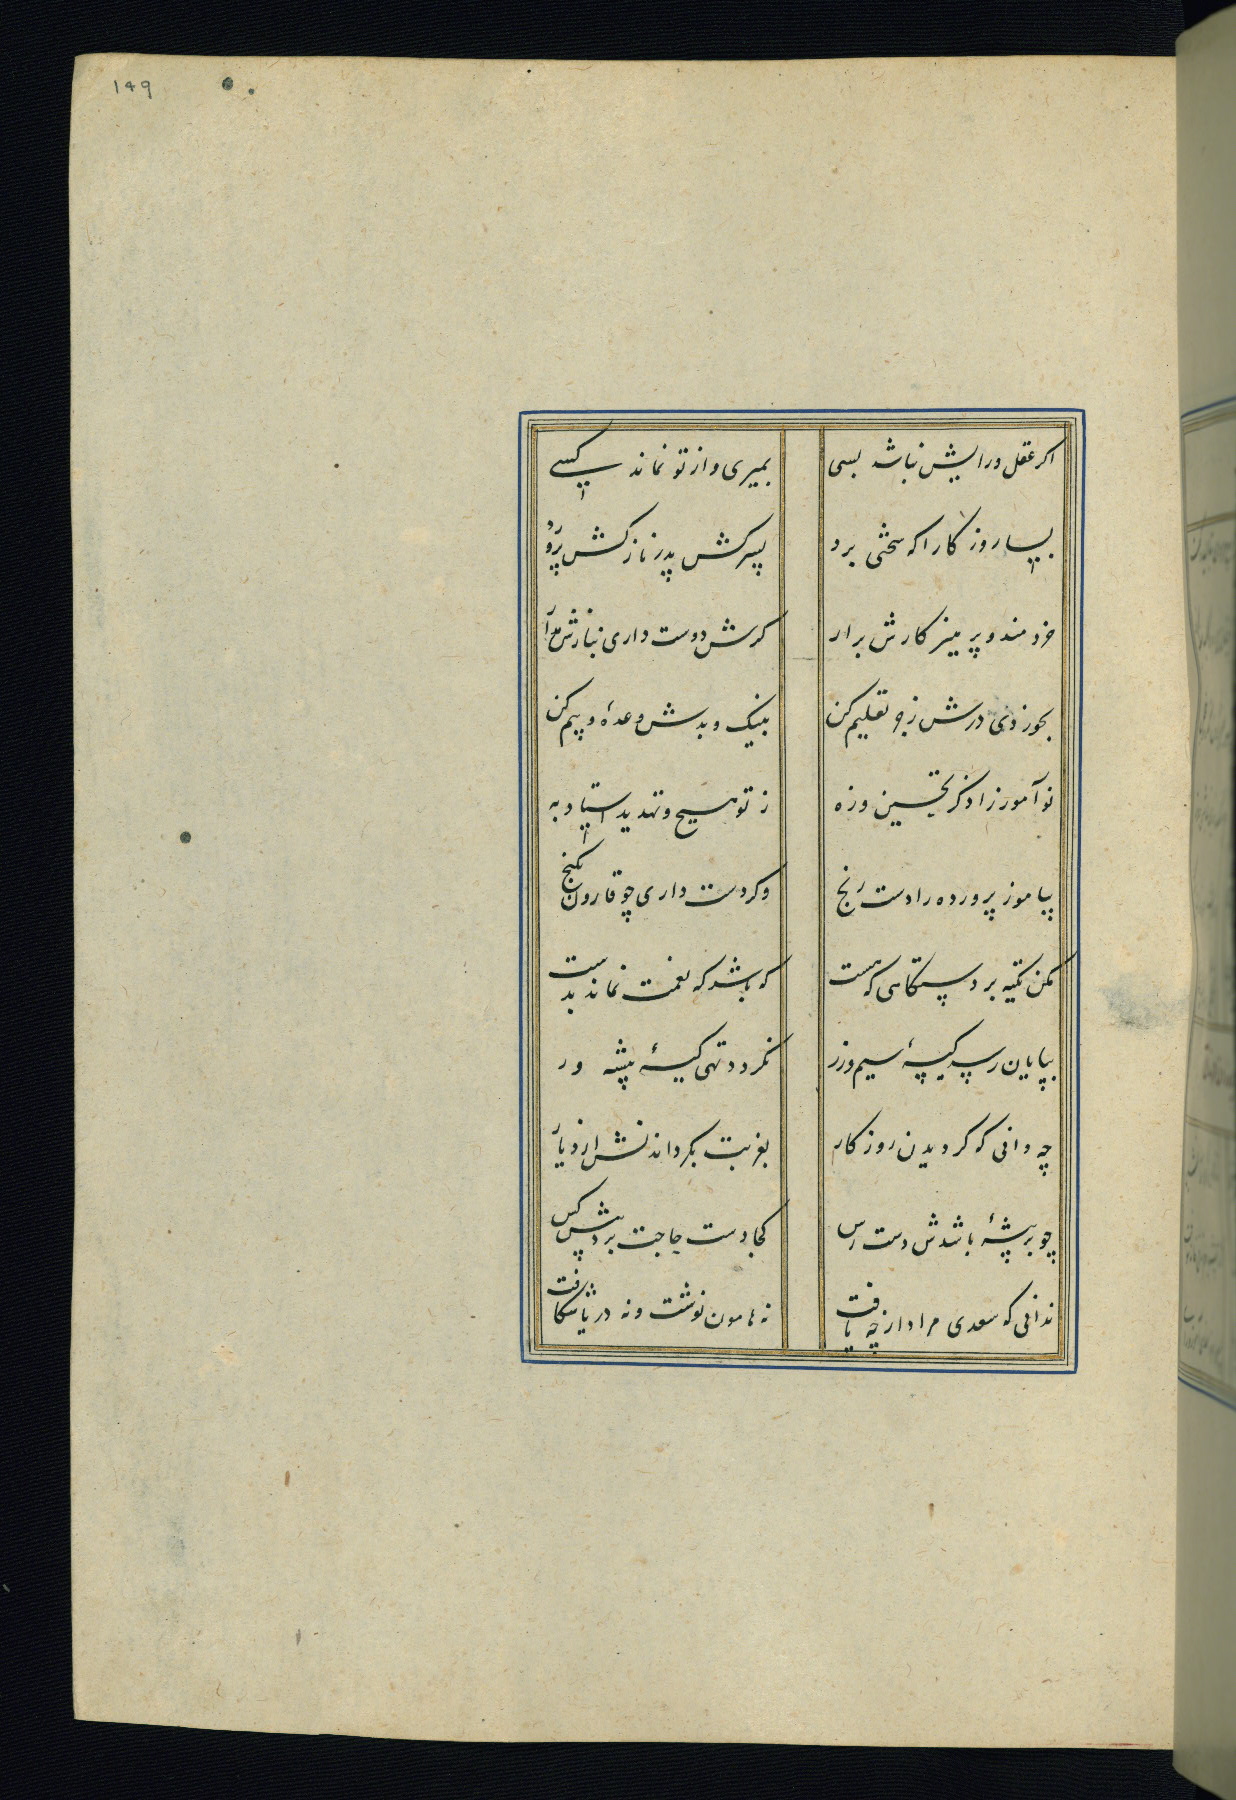 ۱۴۹
اکر عقل و رایش نباشد بسی
بمیری و از تو نماند کسی
بسا روز کارا که سختی برد
پسر کش پدر نازکش پرورد
خردمند و پرهیز کارش برار
کرش دوست داری بنازش مدار
بخوردی درش زجر و تعلیم کن
بنیک و بدش وعدۀ و بیم کن
نو آموز را ذکر تحسین و زه
ز توبیخ و تهدید استاد به
بیاموز پرورده را دست رنج
وکر دست داری چو قارون بکنج
مکن تکیه بر دستکاهی که هست
که باشد که نعمت نماند بدست
بپایان رسد کیسۀ سیم و زر
نکردد تهی کیسۀ پیشه ور
چه دانی که کردیدن روزکار
بغربت بکرداندش از دیار
چو بر پیشۀ باشدش دست رس
کجا دست حاجت برد پیش کس
ندانی که سعدی مراد از چه یافت
نه هامون نوشت و نه دریا شکافت